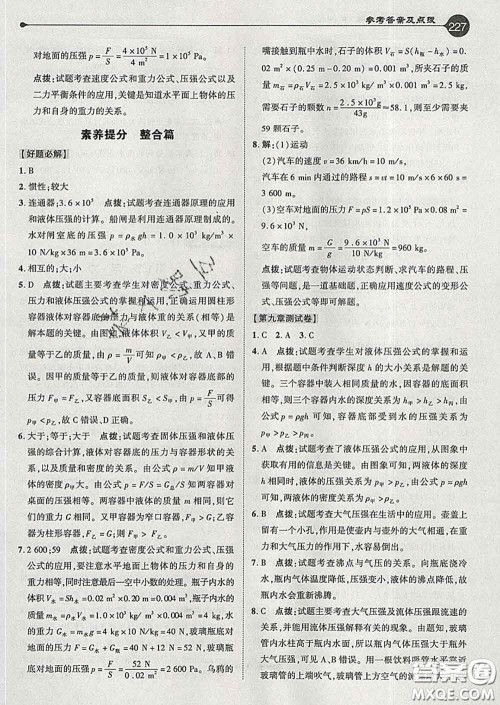 参考答案及点拨
227
对地面的压强 p=F/S=4×10⁵ N/4 m²=1×10⁵ Pa。
点拨:试题考查速度公式和重力公式、压强公式以及
二力平衡条件的应用,关键是知道水平面上物体的压
力和自身的重力的关系。
素养提分 整合篇
【好题必解】
1. B
2. 惯性;较大
3. 连通器;3.6×10⁵ 点拨:试题考查连通器原理的应用
和液体压强的计算。船闸是利用连通器原理制成的。
水对闸室底部的压强 p=ρ水gh=1.0×10³ kg/m³×
10 N/kg×36 m=3.6×10⁵ Pa。
4. 相互的;大;小
5. D 点拨:试题主要考查学生对密度公式、重力公式、
压力和液体压强公式的掌握和运用,运用圆柱形容
器液体对容器底的压力与液体的重力的关系等是
解本题的关键。由图像得,液体体积 V乙<V甲,因
甲的质量等于乙的质量,根据 ρ=m/V 可知,ρ甲<ρ乙。
因甲的质量等于乙的质量,则液体对容器底部的压
力 F甲=F乙,而容器底面积 S甲>S乙,由公式 p=F/S
可得,p甲<p乙,故 C 错误、D 正确。
6. 大于;等于;大于 点拨:试题考查固体压强和液体压
强的综合计算,要求掌握容器对桌面的压力与压强、
以及质量和密度的关系。由公式 ρ=m/V 可得液
体的密度关系为 ρ甲>ρ乙。由 p=F/S=G/S 得容器对
桌面的压强 p甲=p乙。由公式 p=ρgh 可得液体压强
p甲>p乙。由于甲容器为窄口容器,F甲>G甲;乙容器
为柱形容器,F乙=G乙,所以 F甲>F乙。
7. 2 600;59 点拨:试题考查密度公式和重力公式、压强
公式的应用,要注意水平地面上物体的压力和自身重力
相同,同时注意最后一空中小数的处理。瓶子内水的体
积 V水=Sh水=0.02 m²×0.2 m=0.004 m³,瓶子内水的
质量 m水=ρ水V水=1.0×10³ kg/m³×0.004 m³=4 kg,
瓶子的总重 G水=m水g=4 kg×10 N/kg=40 N,玻璃瓶
对地面的压力 F=G水+G瓶=40 N+12 N=52 N,玻璃
瓶底对地面的压强 p=F/S=52 N/0.02 m²=2 600 Pa。乌鸦的
嘴接触到瓶中水时,石子的体积 V石=S(h瓶-h水)=0.
02 m²×(0.25 m-0.2 m)=0.001 m³,所夹石子的质
量 m石=ρ石V石=2.5×10³ kg/m³×0.001 m³=2.5 kg,
需要石子的颗数 n=2.5×10³g/43g≈58.1,所以至少需要夹
59 颗石子。
8. 解:(1)运动
(2)汽车的速度 v=36 km/h=10 m/s,
汽车在 6 min 内通过的距离 s=vt=10 m/s×6×60 s=
3 600 m。
(3)空车对地面的压力 F=pS=1.2×10⁵ Pa×0.08 m²=
空车的质量 m=G/g=9.6×10³ N/10 N/kg=960 kg。
点拨:试题考查物体运动状态判断、求汽车的路程、
质量等,是一道基础题,正确理解物体运动状态、压
强公式等即可解题。
【第九章测试卷】
1. C
2. A 点拨:试题考查学生对液体压强公式的掌握和运
用,根据题中条件判断深度 h 的大小关系是解题的
关键。三个容器中装入相同的水,因容器的底面积
相等,则三个容器中水的深度关系为 h甲>h乙>h丙,
由公式 p=ρgh 可知,容器底部受到水的压强关系为
p甲>p乙>p丙。
3. A 点拨:试题考查了液体压强公式的应用,从图象中
获取有用的信息是关键。由图象可知,两液体的深度
相同时,甲液体的压强大于乙液体的压强,由公式
p=ρgh 可得,两液体的密度关系为 ρ甲>ρ乙。
4. B 点拨:试题考查大气压强在生活中的应用。壶盖上
开有一个小孔,作用是使壶内与壶外的大气相通,在
重力和大气压强的共同作用下,水容易流出。
5. B 点拨:试题考查沸点与气压的关系。向瓶底浇冷水,
瓶内气体温度降低,气压减小,沸点降低,水重新
沸腾。
6. C 点拨:试题主要考查大气压强及流体压强跟流速的
关系,并利用所学解释有关的现象。由题图知,玻璃
管内水柱高于瓶内水面,所以瓶内气体压强大于外界
大气压强,故 A 错误。用一根饮料吸管水平往右吹
玻璃管的上端吹气,玻璃管上方空气的流速变大,压
答案圈
MXQE.COM